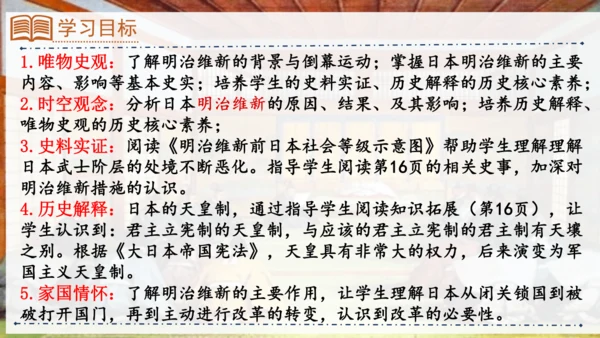 学习目标
1.唯物史观：了解明治维新的背景与倒幕运动；掌握日本明治维新的主要
内容、影响等基本史实；培养学生的史料实证、历史解释的历史核心素养；
2.时空观念：分析日本明治维新的原因、结果、及其影响；培养历史解释、
唯物史观的历史核心素养；
3.史料实证：阅读《明治维新前日本社会等级示意图》帮助学生理解理解
日本武士阶层的处境不断恶化。指导学生阅读第16页的相关史事，加深对
明治维新措施的认识。
4.历史解释：日本的天皇制，通过指导学生阅读知识拓展（第16页），让
学生认识到：君主立宪制的天皇制，与应该的君主立宪制的君主制有天壤
之别。根据《大日本帝国宪法》，天皇具有非常大的权力，后来演变为军
国主义天皇制。
5.家国情怀：了解明治维新的主要作用，让学生理解日本从闭关锁国到被
破打开国门，再到主动进行改革的转变，认识到改革的必要性。